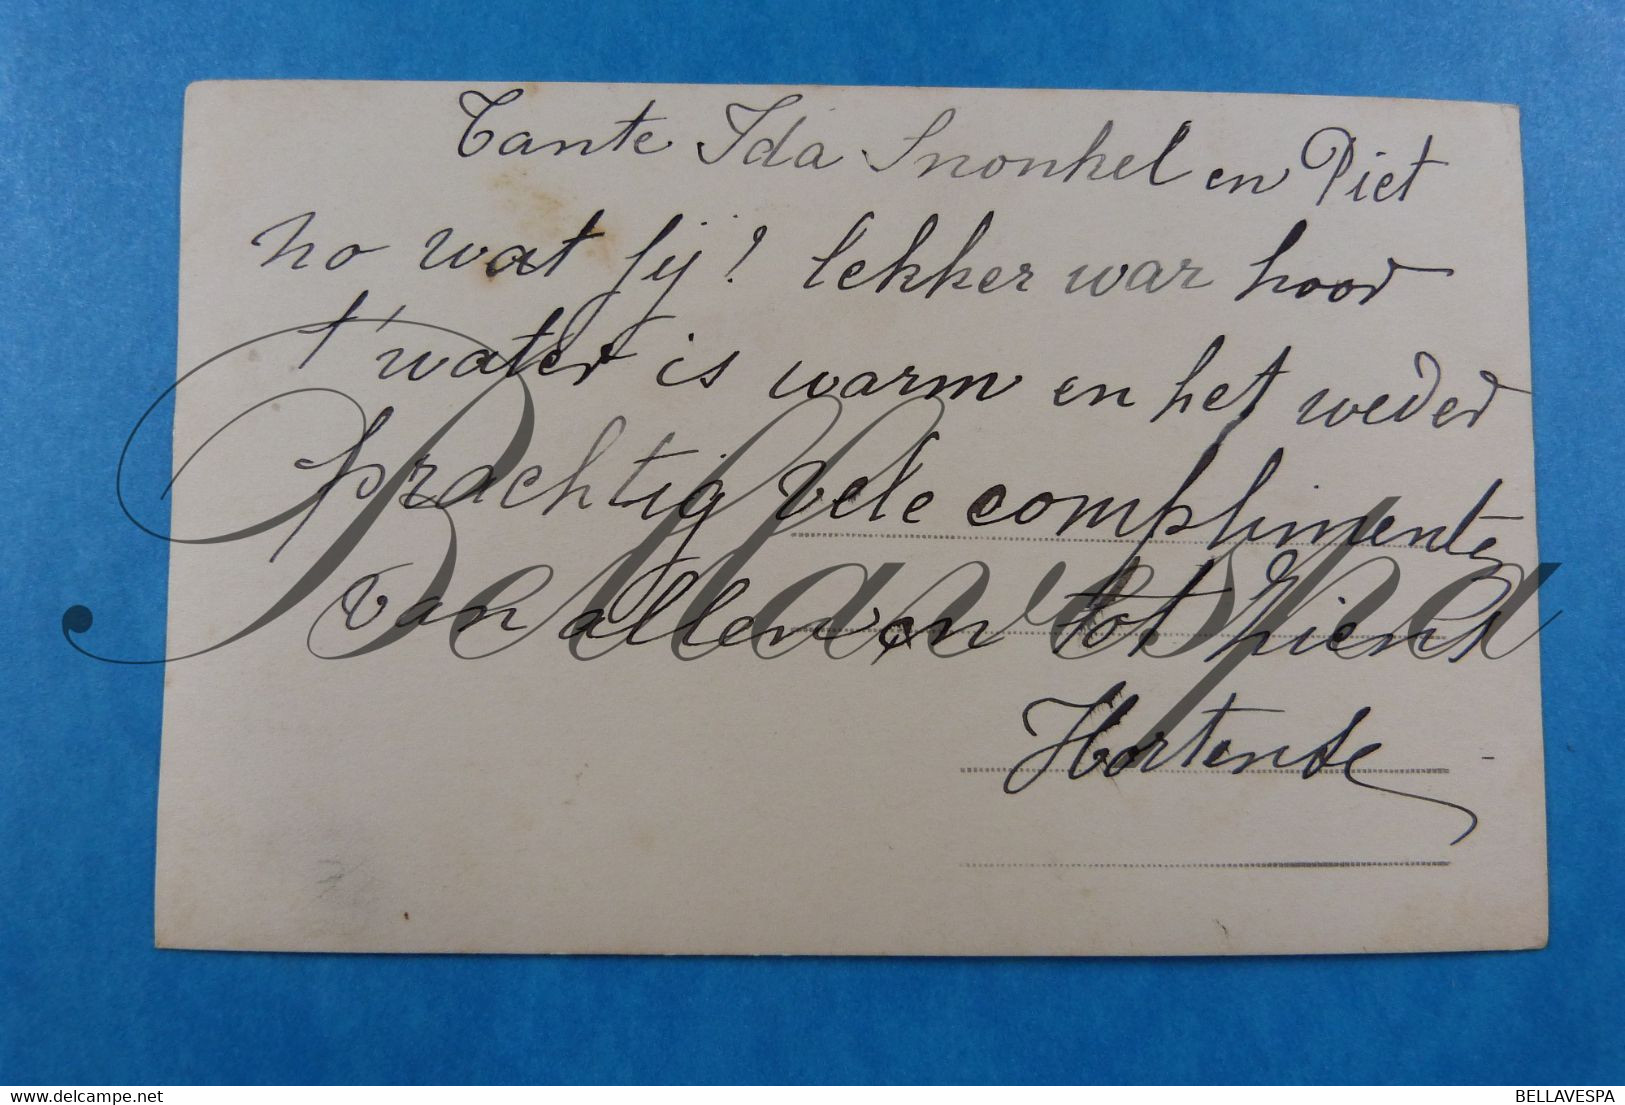 Tante Ida Snonkel en Piet
ho wat fij! lekker war hoor
t' water is warm en het weder
prachtig vele complimente
van allen en tot ziens
Hortense
Bellavespa
BELLAVESPA